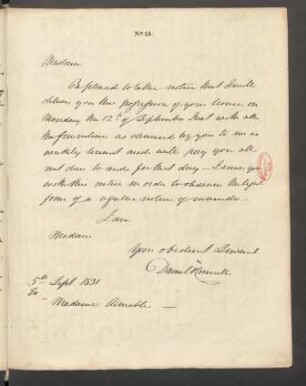 No. 13.
Madam
Be pleased to take notice that I will
deliver you the possession of your house on
Monday the 12th of September Inst with all
the furniture as demised by you to me as
weekly tenant and will pay you all
rent due to and for that day - I serve you
with this notice in order to observe the legal
form of a regular notice of surrender.
I am
Madam
Your obedient Servant
Daniel
5th Sept 1831
To
Madame Aimable -